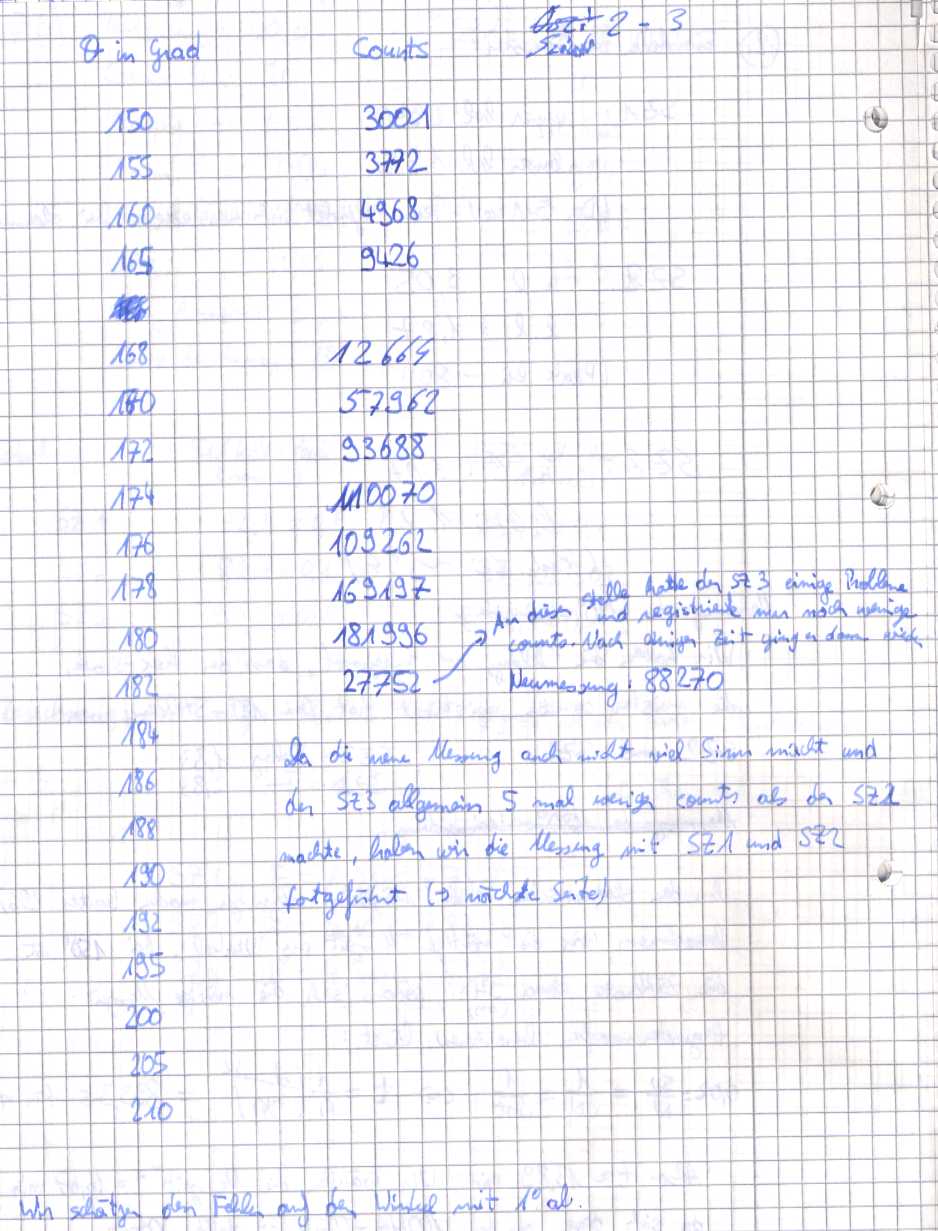 Szinti 2 - 3
θ in Grad Counts
150 3001
155 3772
160 4968
165 9426
168 12664
170 57962
172 93688
174 110070
176 109262
178 169197
180 181996
182 27752
An dieser Stelle hatte der SZ 3 einige Probleme
und registrierte nur noch wenige
counts. Nach einiger Zeit ging er dann wieder
Neumessung: 88270
184
186
188
190
192
195
200
205
210
Da die neue Messung auch nicht viel Sinn macht und
der SZ3 allgemein 5 mal weniger counts als der SZ2
machte, haben wir die Messung mit SZ1 und SZ2
fortgeführt (→ nächste Seite)
Wir schätzen den Fehler auf den Winkel mit 1° ab.